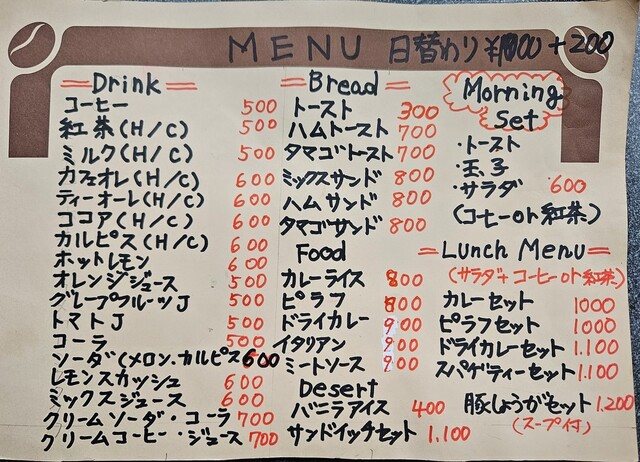 MENU 日替わり ¥1000+200
Drink
コーヒー 500
紅茶(H/C) 500
ミルク(H/C) 500
カフェオレ(H/C) 600
ティーオーレ(H/C) 600
ココア(H/C) 600
カルピス(H/C) 600
ホットレモン 600
オレンジジュース 500
グレープフルーツJ 500
トマトJ 500
コーラ 500
ソーダ(メロン.カルピス 600
レモンスカッシュ 600
ミックスジュース 600
クリームソーダ・コーラ 700
クリームコーヒー・ジュース 700
Bread
トースト 300
ハムトースト 700
タマゴトースト 700
ミックスサンド 800
ハムサンド 800
タマゴサンド 800
Food
カレーライス 800
ピラフ 800
ドライカレー 900
イタリアン 900
ミートソース 900
Desert
バニラアイス 400
サンドイッチセット 1.100
Morning
Set
・トースト
・玉子
・サラダ 600
(コーヒーor紅茶)
Lunch Menu
(サラダ+コーヒーor紅茶)
カレーセット 1000
ピラフセット 1000
ドライカレーセット 1.100
スパゲティーセット 1.100
豚しょうがセット 1.200
(スープ付)